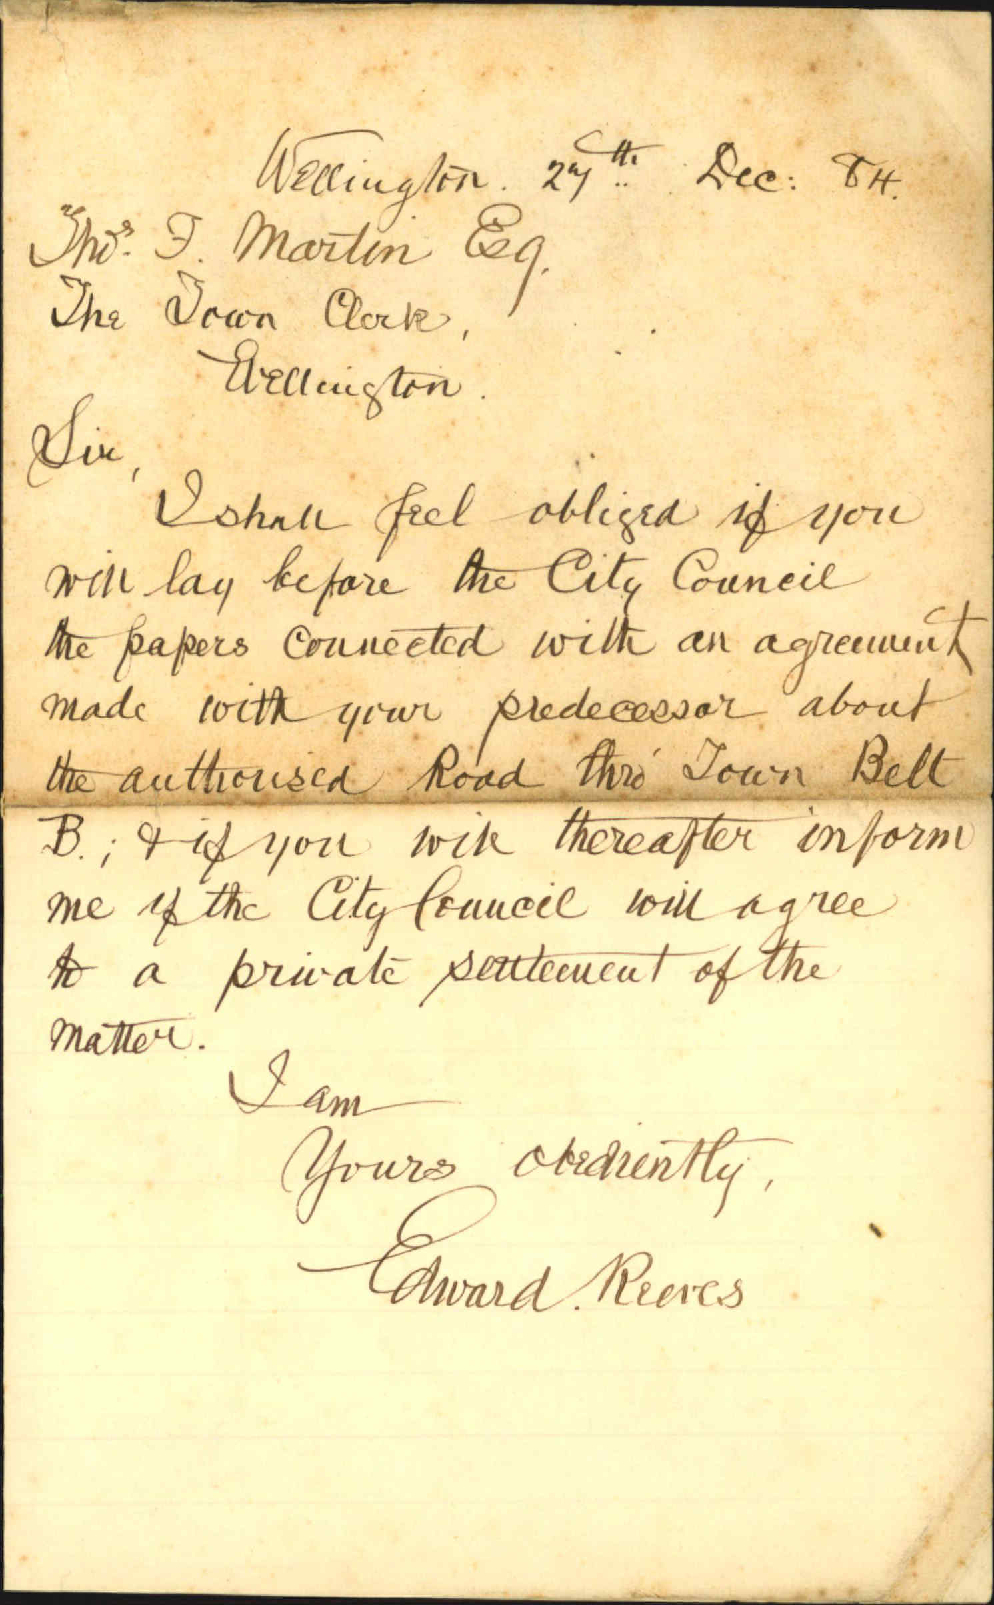 Wellington. 27th. Dec: 84.
Thos. F. Martin Esq.
The Town Clerk,
Wellington.
Sir,
I shall feel obliged if you
will lay before the City Council
the papers connected with an agreement
made with your predecessor about
the authorised Road thro' Town Belt
B.; & if you will thereafter inform
me if the City Council will agree
to a private settlement of the
matter.
I am
Yours obediently,
Edward. Reeves